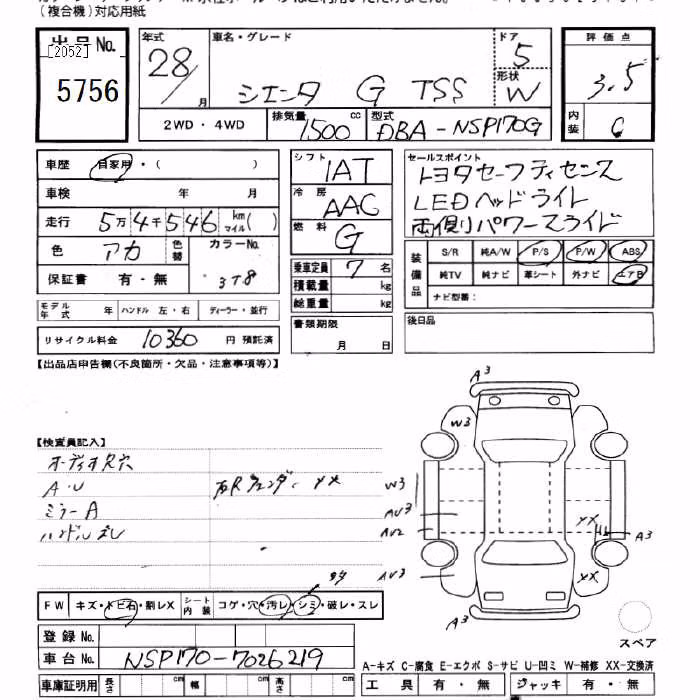 (複合機)対応用紙
出品No.
[2052]
5756
年式
28/
月
車名・グレード
シエンタ G TSS
ドア
5
形状
W
評価点
3.5
内装
C
2WD・4WD
排気量
1500
cc
型式
DBA-NSP170G
車歴
自家用・( )
車検 年 月
走行 5万4千546 km マイル( )
色 アカ 色替
カラーNo.
3T8
保証書 有・無
モデル年式 年 ハンドル 左・右 ディーラー・並行
リサイクル料金 10360 円 預託済
シフト
IAT
冷房
AAC
燃料
G
乗車定員 7 名
積載量 kg
総重量 kg
書類期限
月 日
セールスポイント
トヨタセーフティセンス
LEDヘッドライト
両側パワースライド
装備品
S/R 純A/W P/S P/W ABS
純TV 純ナビ 革シート 外ナビ エアB
ナビ型番:
後日品
【出品店申告欄(不良箇所・欠品・注意事項等)】
【検査員記入】
オーディオ尺穴
A・U 右Rフェンダー XX
ミラーA
ハンドルズレ
A3
W3
W3
AU3
AU2
AU3
XX
A3
XX
A3
スペア
FW キズ・トビ石・割レX
シート内装 コゲ・穴・汚レ・シミ・破レ・スレ
登録No.
車台No. NSP170-7026219
車庫証明用 長さ cm 幅 cm 高さ cm
A-キズ C-腐食 E-エクボ S-サビ U-凹ミ W-補修 XX-交換済
工具 有・無 ジャッキ 有・無